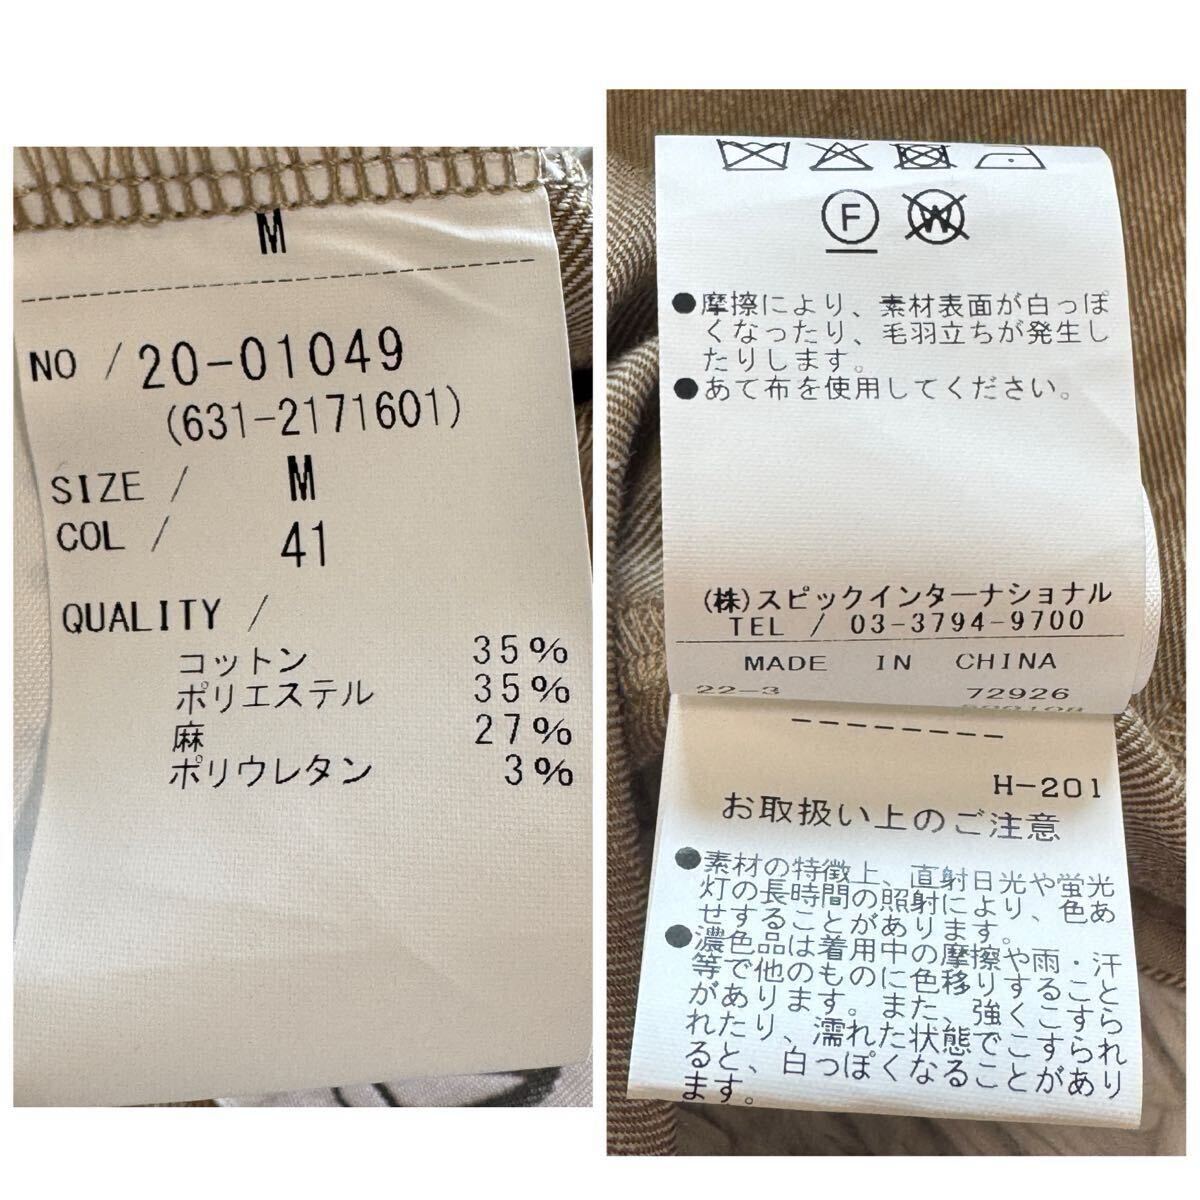 M
NO / 20-01049
(631-2171601)
SIZE / M
COL / 41
QUALITY /
コットン 35%
ポリエステル 35%
麻 27%
ポリウレタン 3%
F
W
●摩擦により、素材表面が白っぽ
くなったり、毛羽立ちが発生し
たりします。
●あて布を使用してください。
(株)スピックインターナショナル
TEL / 03-3794-9700
MADE IN CHINA
22-3 72926
H-201
お取扱い上のご注意
●素材の特徴上、直射日光や蛍光
灯の長時間の照射により、色あ
せすることがあります。
●濃色品は着用中の摩擦や雨・汗
等で他のものに色移りすること
があります。また、強くこすら
れたり、濡れた状態でこすられ
ると、白っぽくなることがあり
ます。